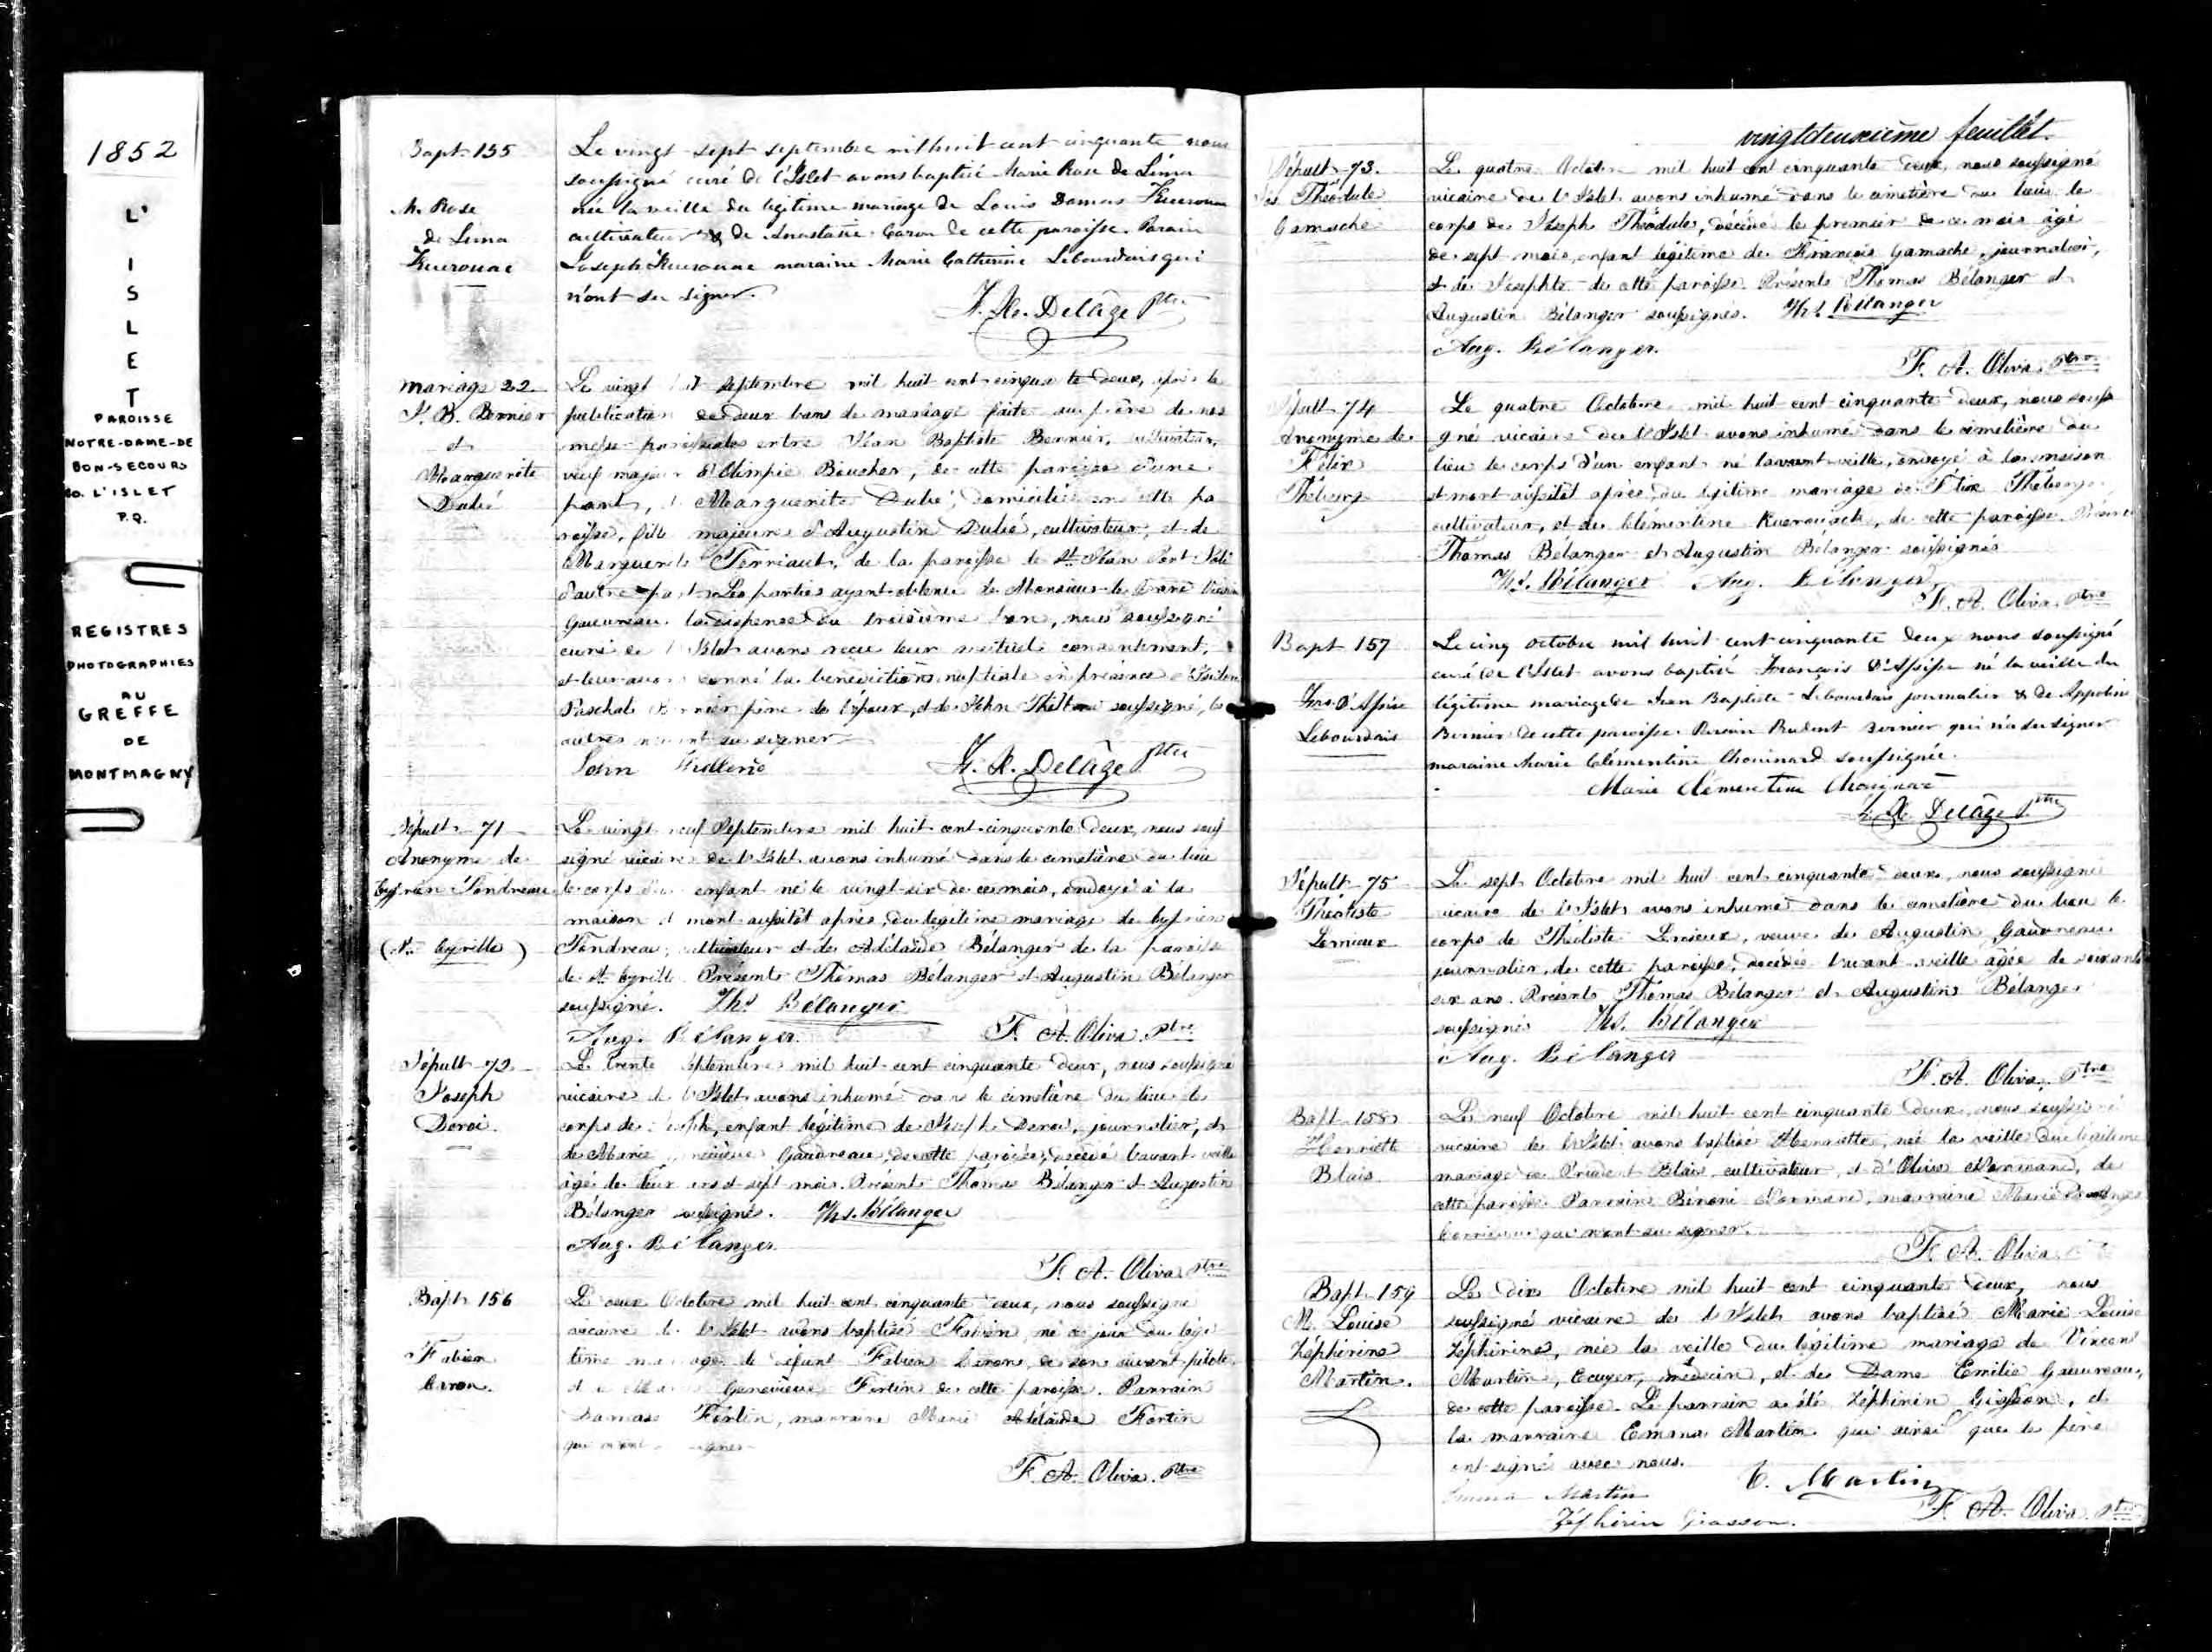 1852
L'
I
S
L
E
T
PAROISSE
NOTRE-DAME-DE
BON-SECOURS
Co. L'ISLET
P.Q.
REGISTRES
PHOTOGRAPHIES
AU
GREFFE
DE
MONTMAGNY
Bapt. 155
M. Rose
de Lima
Kuerouac
Le vingt-sept septembre mil huit cent cinquante nous
soussigné curé de l'Islet avons baptisé Marie Rose de Lima
née la veille du légitime mariage de Louis Damas Kuerouac
cultivateur & de Anastasie Caron de cette paroisse. Parain
Joseph Kuerouac maraine Marie Catherine Lebourdais qui
n'ont su signer.
F. X. Delâge Ptre
Mariage 22
J. B. Bernier
et
Marguerite
Dubé
Le vingt septembre mil huit cent cinquante deux, après la
publication de deux bans de mariage faite au prône de nos
messes paroissiales entre Jean Baptiste Bernier, cultivateur,
veuf majeur d'Olimpie Boucher, de cette paroisse d'une
part, et Marguerite Dubé, domiciliée en cette pa
roisse, fille majeure d'Augustin Dubé, cultivateur, et de
Marguerite Terriault, de la paroisse de St. Jean Port-Joli
d'autre part. Les parties ayant obtenu de Monsieur le Grand Vicaire
Gauvreau la dispense du troisième ban, nous soussigné
curé de l'Islet avons reçu leur mutuel consentement,
et leur avons donné la bénédiction nuptiale en présence de
Paschal Bernier père de l'époux, et de John soussigné, les
autres n'ont su signer
John
F. X. Delâge Ptre
Sépult. 71
Anonyme de
Cyprien Tondreau
(St. Cyrille)
Le vingt neuf Septembre mil huit cent cinquante deux, nous sous
signé vicaire de l'Islet avons inhumé dans le cimetière du lieu
le corps d'un enfant né le vingt-six de ce mois, ondoyé à la
maison et mort aussitôt après, du légitime mariage de Cyprien
Tondreau, cultivateur et de Adélaïde Bélanger de la paroisse
de St. Cyrille. Présents Thomas Bélanger et Augustin Bélanger
soussigné. Ths. Bélanger
Aug. Bélanger. F. A. Oliva Ptre
Sépult. 72
Joseph
Deroi.
Le trente Septembre mil huit cent cinquante deux, nous soussigné
vicaire de l'Islet avons inhumé dans le cimetière du lieu le
corps de Joseph, enfant légitime de Joseph Deroi, journalier, et
de Marie Geneviève Gaudreau, de cette paroisse, décédé l'avant-veille
âgé de deux ans et sept mois. Présents Thomas Bélanger et Augustin
Bélanger soussignés. Ths. Bélanger
Aug. Bélanger
F. A. Oliva Ptre
Bapt. 156
Fabien
Caron.
Le deux Octobre mil huit cent cinquante deux, nous soussigné
vicaire de l'Islet avons baptisé Fabien, né ce jour du légi
time mariage de défunt Fabien Caron, de son vivant pilote,
et de Marie Geneviève Fortin de cette paroisse. Parrain
Damase Fortin, marraine Marie Adélaïde Fortin
qui n'ont signer
F. A. Oliva. Ptre
vingtdeuxième feuillet.
Sépult. 73.
Jos. Théodule
Gamache
Le quatre Octobre mil huit cent cinquante deux, nous soussigné
vicaire de l'Islet avons inhumé dans le cimetière du lieu le
corps de Joseph Théodule, décédé le premier de ce mois âgé
de sept mois, enfant légitime de François Gamache, journalier,
et de Josephte de cette paroisse. Présents Thomas Bélanger et
Augustin Bélanger soussignés. Ths. Bélanger
Aug. Bélanger.
F. A. Oliva Ptre
Sépult. 74
Anonyme de
Félix
Théberge
Le quatre Octobre mil huit cent cinquante deux, nous soussi
gné vicaire de l'Islet avons inhumé dans le cimetière du
lieu le corps d'un enfant né l'avant veille, ondoyé à la maison
et mort aussitôt après, du légitime mariage de Félix Théberge
cultivateur, et de Clémentine Kuerouack, de cette paroisse. Présents
Thomas Bélanger et Augustin Bélanger soussignés
Ths. Bélanger Aug. Bélanger
F. A. Oliva Ptre
Bapt. 157
Frs. D'Assise
Lebourdais
Le cinq octobre mil huit cent cinquante deux nous soussigné
curé de l'Islet avons baptisé François D'Assise né la veille du
légitime mariage de Jean Baptiste Lebourdais journalier & de Appoline
Bernier de cette paroisse. Parain Prudent Bernier qui n'a su signer
maraine Marie Clémentine Chouinard soussignée.
Marie Clémentine Chouinard
F. X. Delâge Ptre
Sépult. 75
Théotiste
Lemieux
Le sept Octobre mil huit cent cinquante deux, nous soussigné
vicaire de l'Islet avons inhumé dans le cimetière du lieu le
corps de Théotiste Lemieux, veuve de Augustin Gaudreau
journalier, de cette paroisse, décédée l'avant-veille âgée de soixante
six ans. Présents Thomas Bélanger et Augustin Bélanger
soussignés Ths. Bélanger
Aug. Bélanger
F. A. Oliva, Ptre
Bapt. 158
Henriette
Blais
Le neuf Octobre mil huit cent cinquante deux, nous soussigné
vicaire de l'Islet avons baptisé Henriette, née la veille du légitime
mariage de Prudent Blais cultivateur, et d'Olive Normand, de
cette paroisse. Parrain Bénoni Normand, marraine Marie
qui n'ont su signer.
F. A. Oliva
Bapt. 159
M. Louise
Zéphirine
Martin.
Le dix Octobre mil huit cent cinquante deux, nous
soussigné vicaire de l'Islet avons baptisé Marie Louise
Zéphirine, née la veille du légitime mariage de Vincent
Martin, Ecuyer, médecin, et de Dame Emilie Gauvreau,
de cette paroisse. Le parrain a été Zéphirin Giasson, et
la marraine Emma Martin qui ainsi que le père
ont signé avec nous.
V. Martin
Emma Martin
Zéphirin Giasson.
F. A. Oliva Ptre